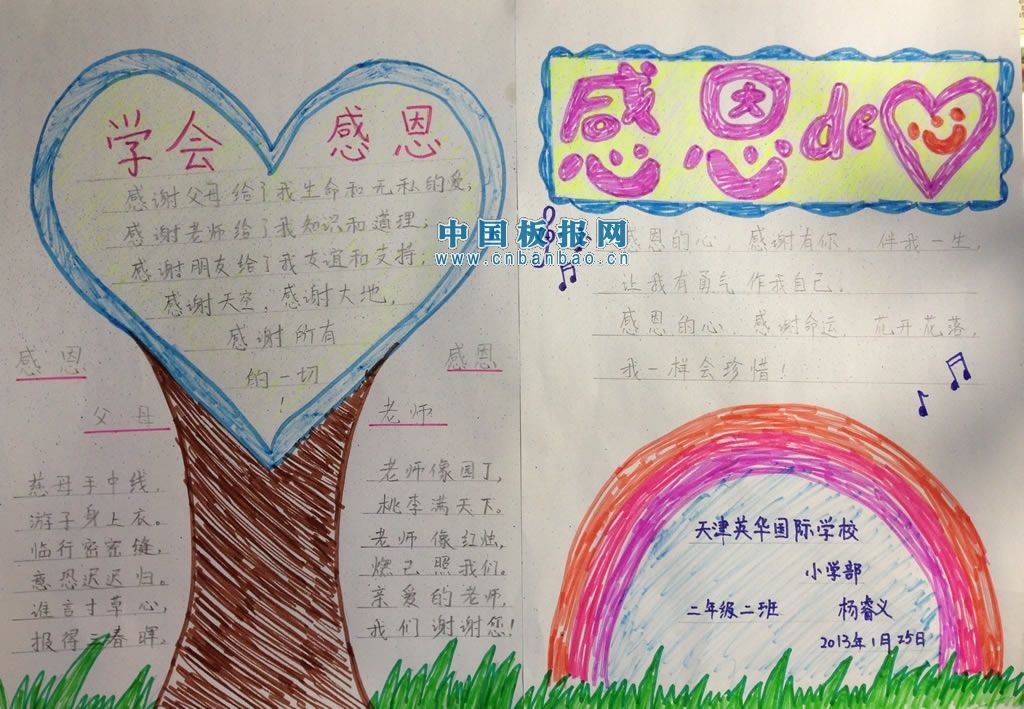 学会感恩
感谢父母给了我生命和无私的爱;
感谢老师给了我知识和道理;
感谢朋友给了我友谊和支持;
感谢天空,感谢大地,
感谢所有
的一切
!
感恩
父母
慈母手中线,
游子身上衣。
临行密密缝,
意恐迟迟归。
谁言寸草心,
报得三春晖。
感恩
老师
老师像园丁,
桃李满天下。
老师像红烛,
燃己照我们。
亲爱的老师,
我们谢谢您!
感恩de
中国板报网
www.cnbanbao.cn
感恩的心,感谢有你,伴我一生,
让我有勇气作我自己。
感恩的心,感谢命运,花开花落,
我一样会珍惜!
天津英华国际学校
小学部
二年级二班 杨睿义
2013年1月25日